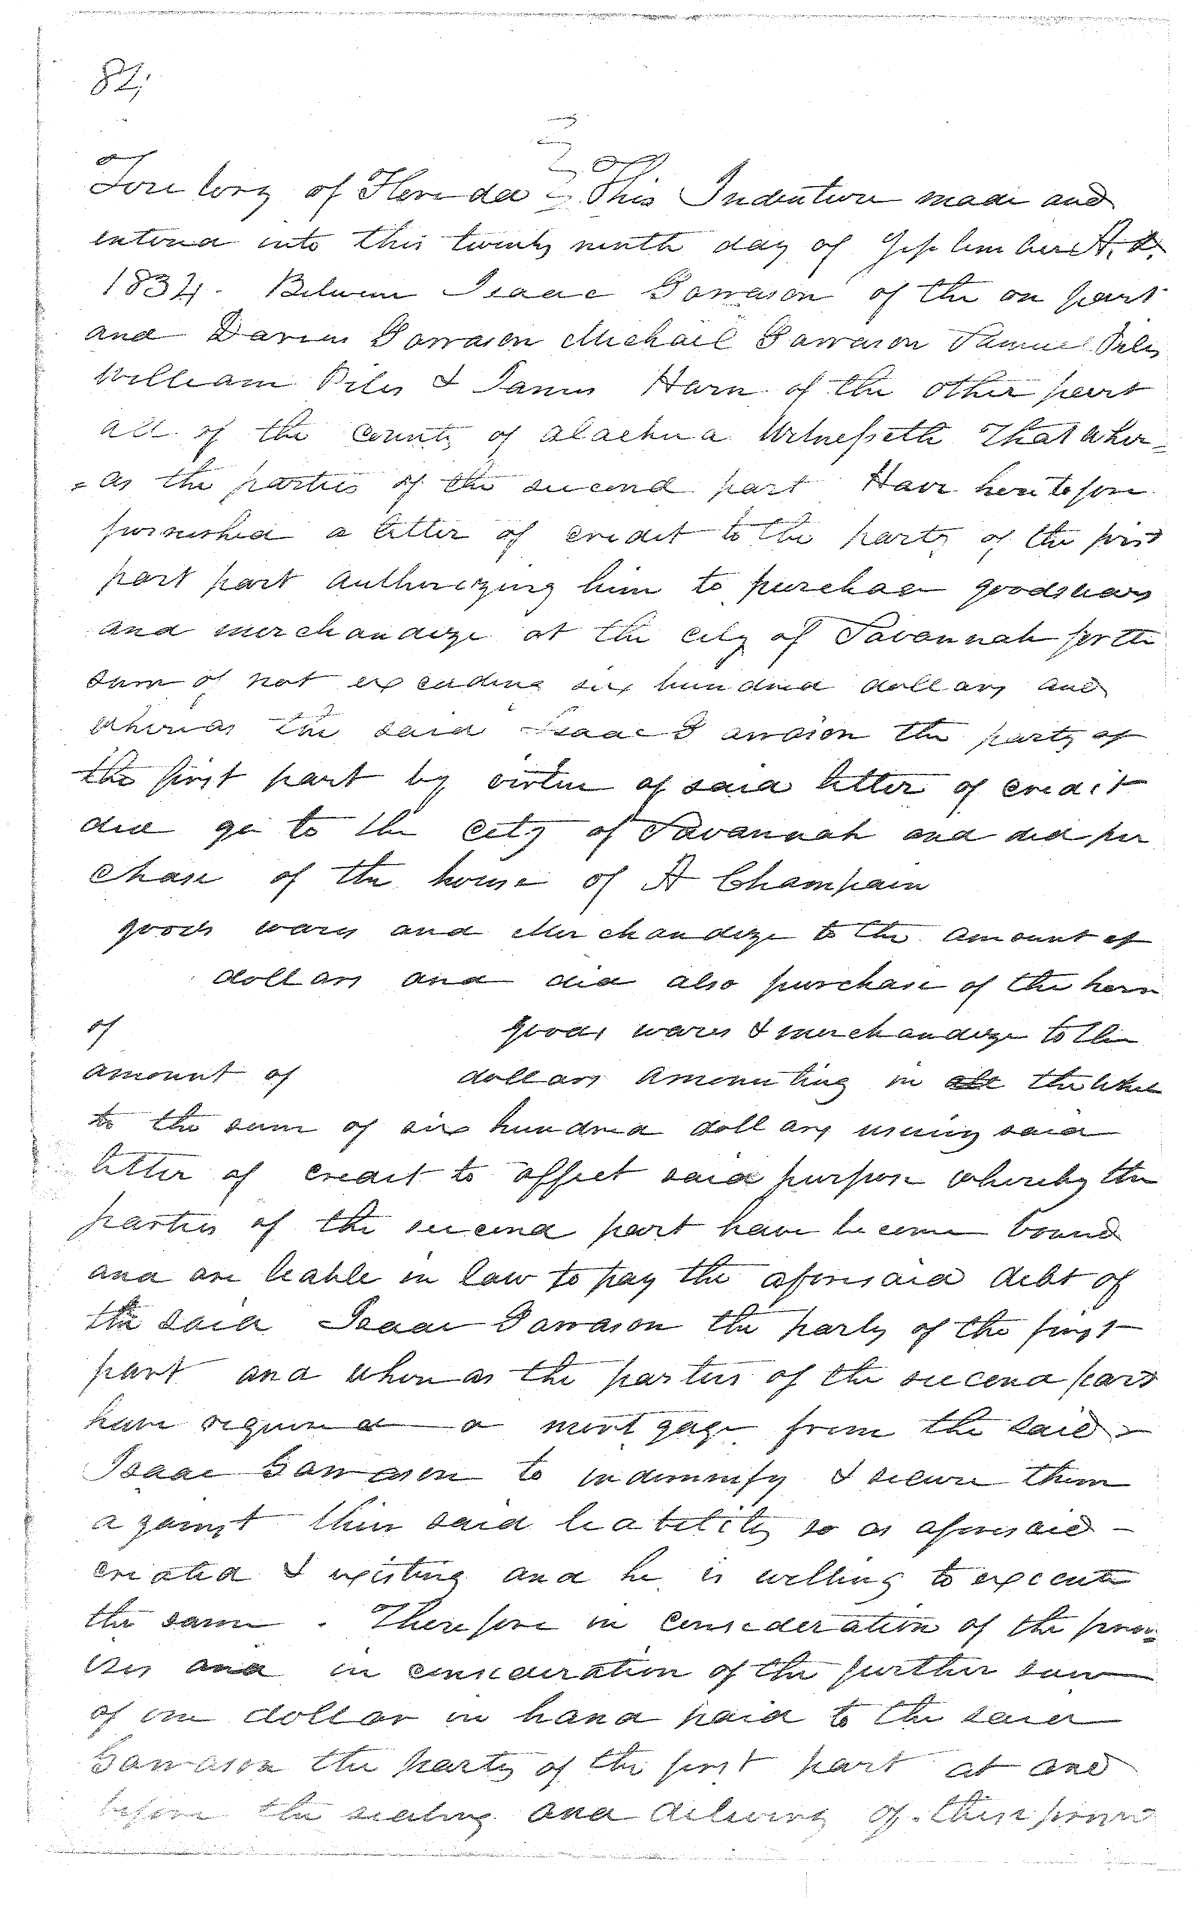 82;
Teritory of Florida } This Indenture made and
entered into this twenty ninth day of September A.D.
1834. Between Isaac Garrason of the on part
and Darius Garrason Michael Garrason Samuel Piles
William Piles & James Harn of the other part
all of the county of alachua Witnesseth That wher=
=as the parties of the second part Have heretofore
furnished a letter of credit to the party of the first
part part authorizing him to purchase goods wars
and merchandize at the city of Savannah for the
sum of not exceading six hundred dollars and
whereas the said Isaac Garrason the party of
the first part by virtue of said letter of credit
did go to the city of Savannah and did pur
chase of the house of A Champain
goods wares and Merchandize to the amount of
dollars and did also purchase of the
of goods wares & merchandize to the
amount of dollars amounting in all the whole
to the sum of six hundred dollars using said
letter of credit to affect said purpose whereby the
parties of the second part have become bound
and are leable in law to pay the aforesaid debt of
the said Isaac Garrason the party of the first
part and whereas the parties of the second part
have required a mortgage from the said
Isaac Garrason to indemnify & secure them
against their said leability so as aforesaid -
created & existing and he is willing to execute
the same. Therefore in consideration of the prem=
ises and in consideration of the further sum
of one dollar in hand paid to the said
Garrason the party of the first part at and
before the sealing and delivery of these presents